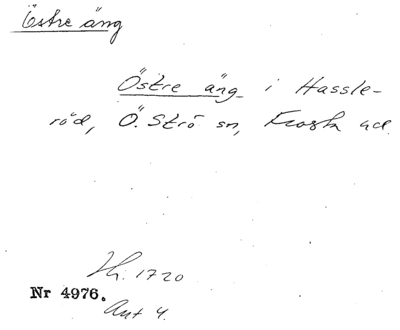 Östre äng
Östre äng i Hassle-
röd, Ö. Strö sn, Frosta hd.
Lh. 1720
Nr 4976.
Avt 4.